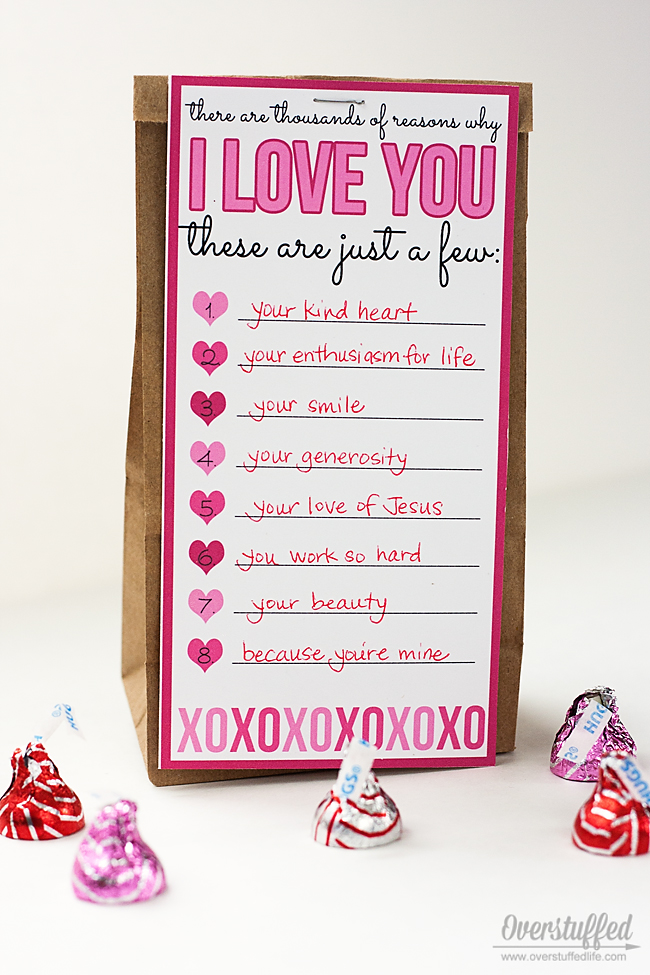 there are thousands of reasons why
I LOVE YOU
these are just a few:
1. your kind heart
2. your enthusiasm for life
3. your smile
4. your generosity
5. your love of Jesus
6. you work so hard
7. your beauty
8. because you're mine
XOXOXOXOXOXO
HUGS
HUGS
HUGS
GS®
HUGS
Overstuffed
www.overstuffedlife.com